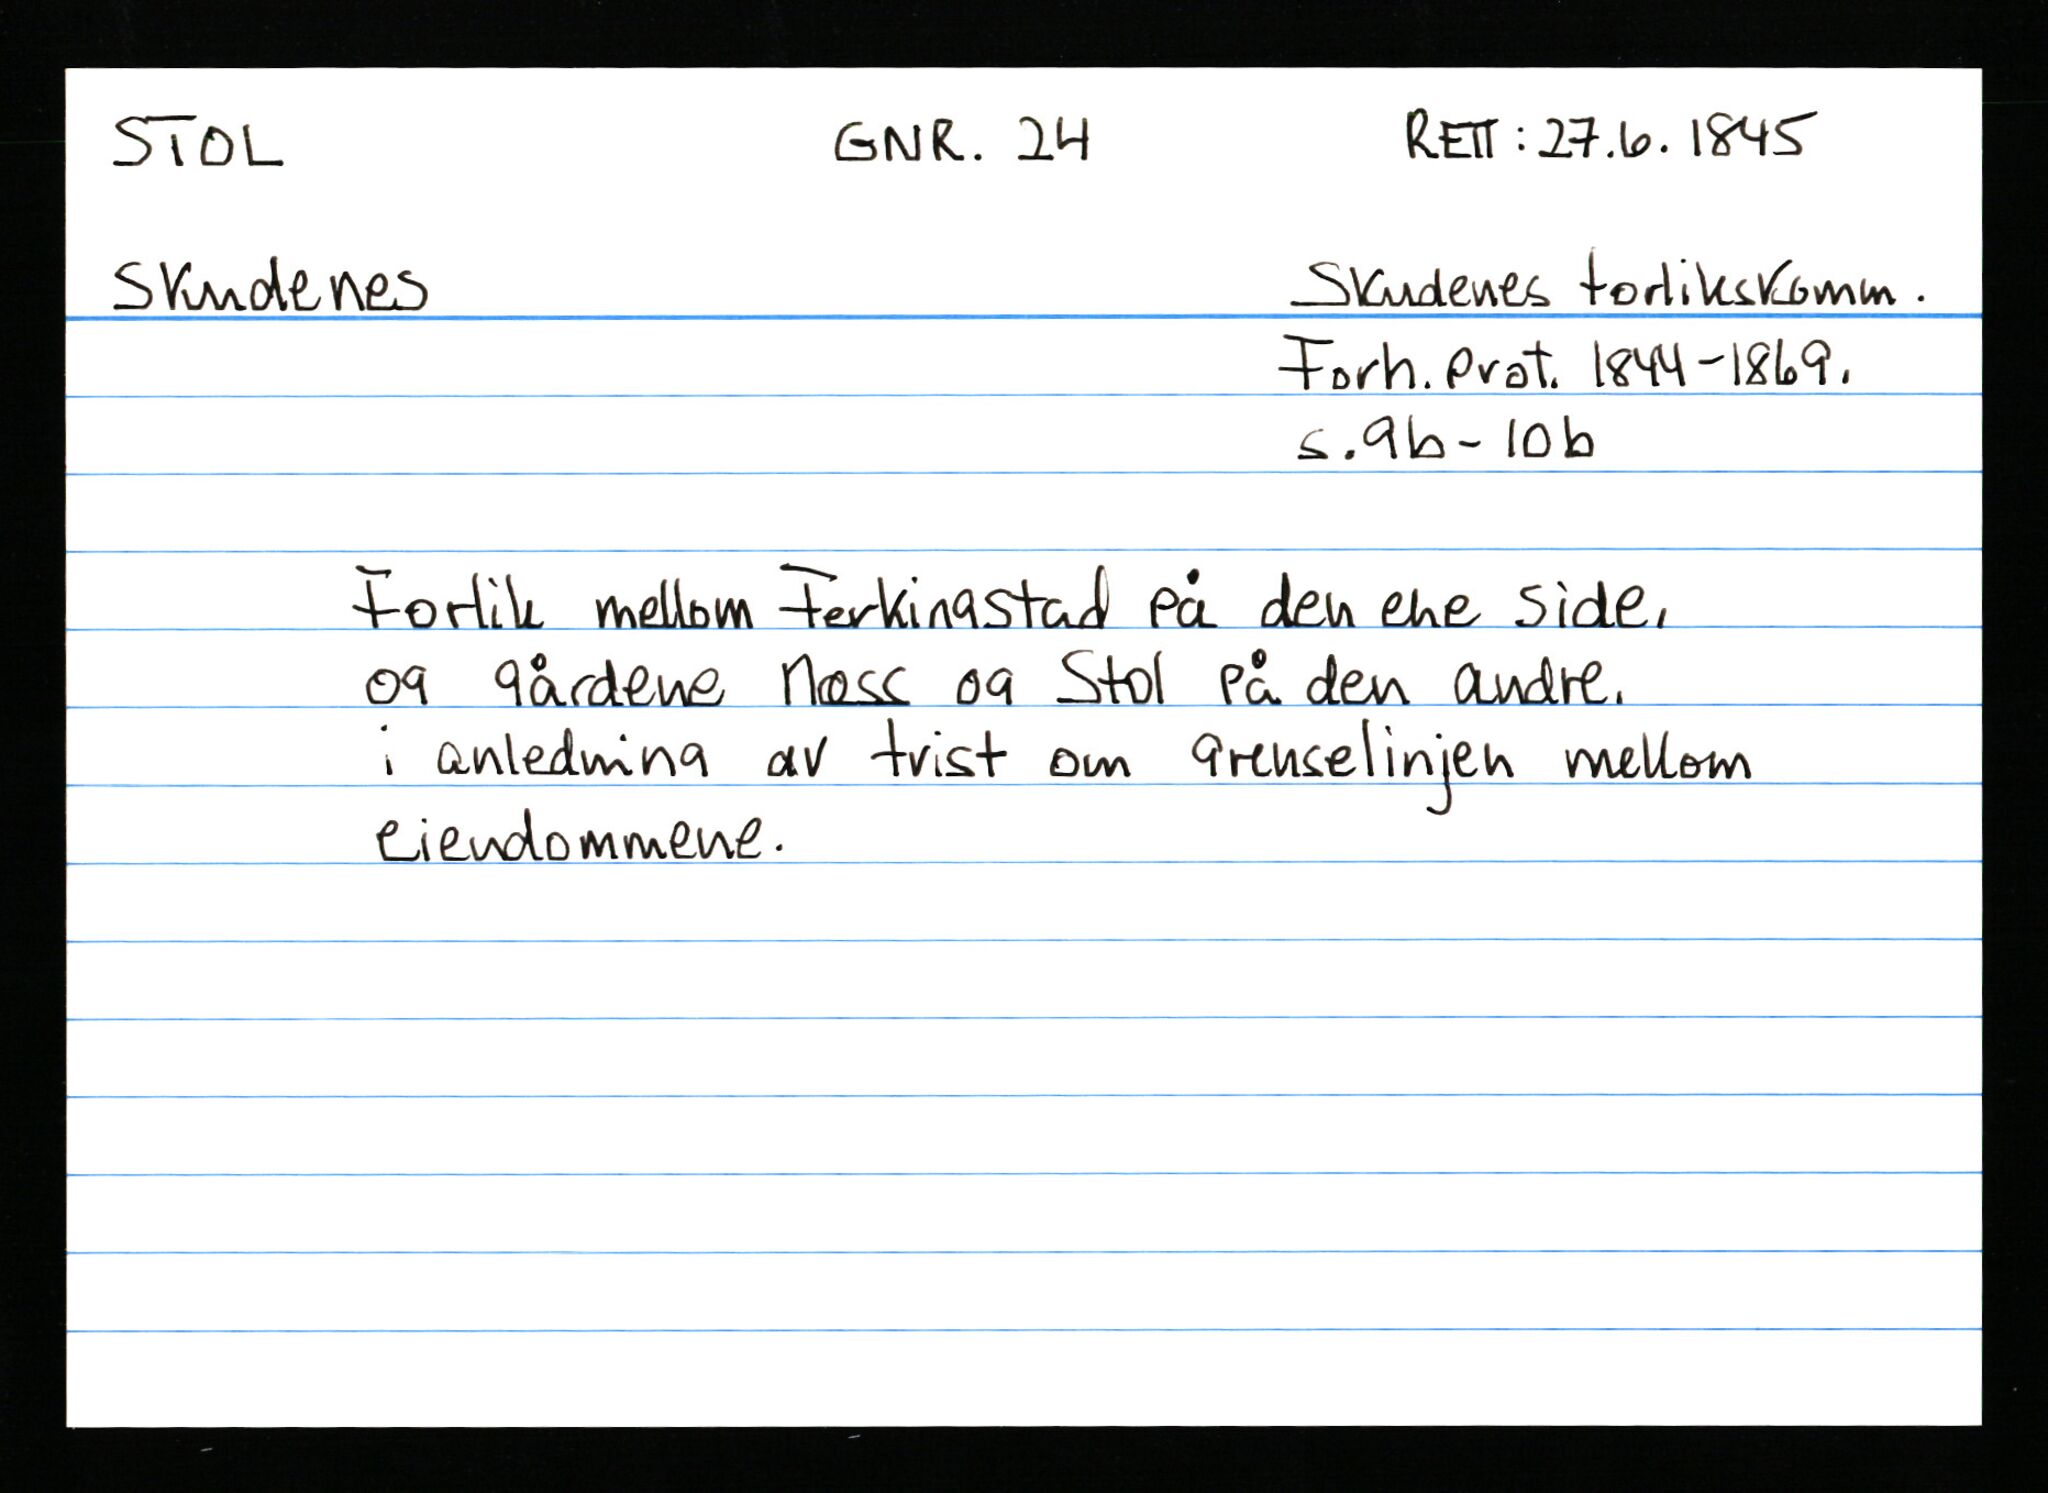 STOL GNR. 24 RETT: 27.6.1845
Skudenes Skudenes forlikskomm.
Forh. prot. 1844-1869.
s. 9b - 10b
Forlik mellom Ferkingstad på den ene side,
og gårdene Næss og Stol på den andre,
i anledning av tvist om grenselinjen mellom
eiendommene.